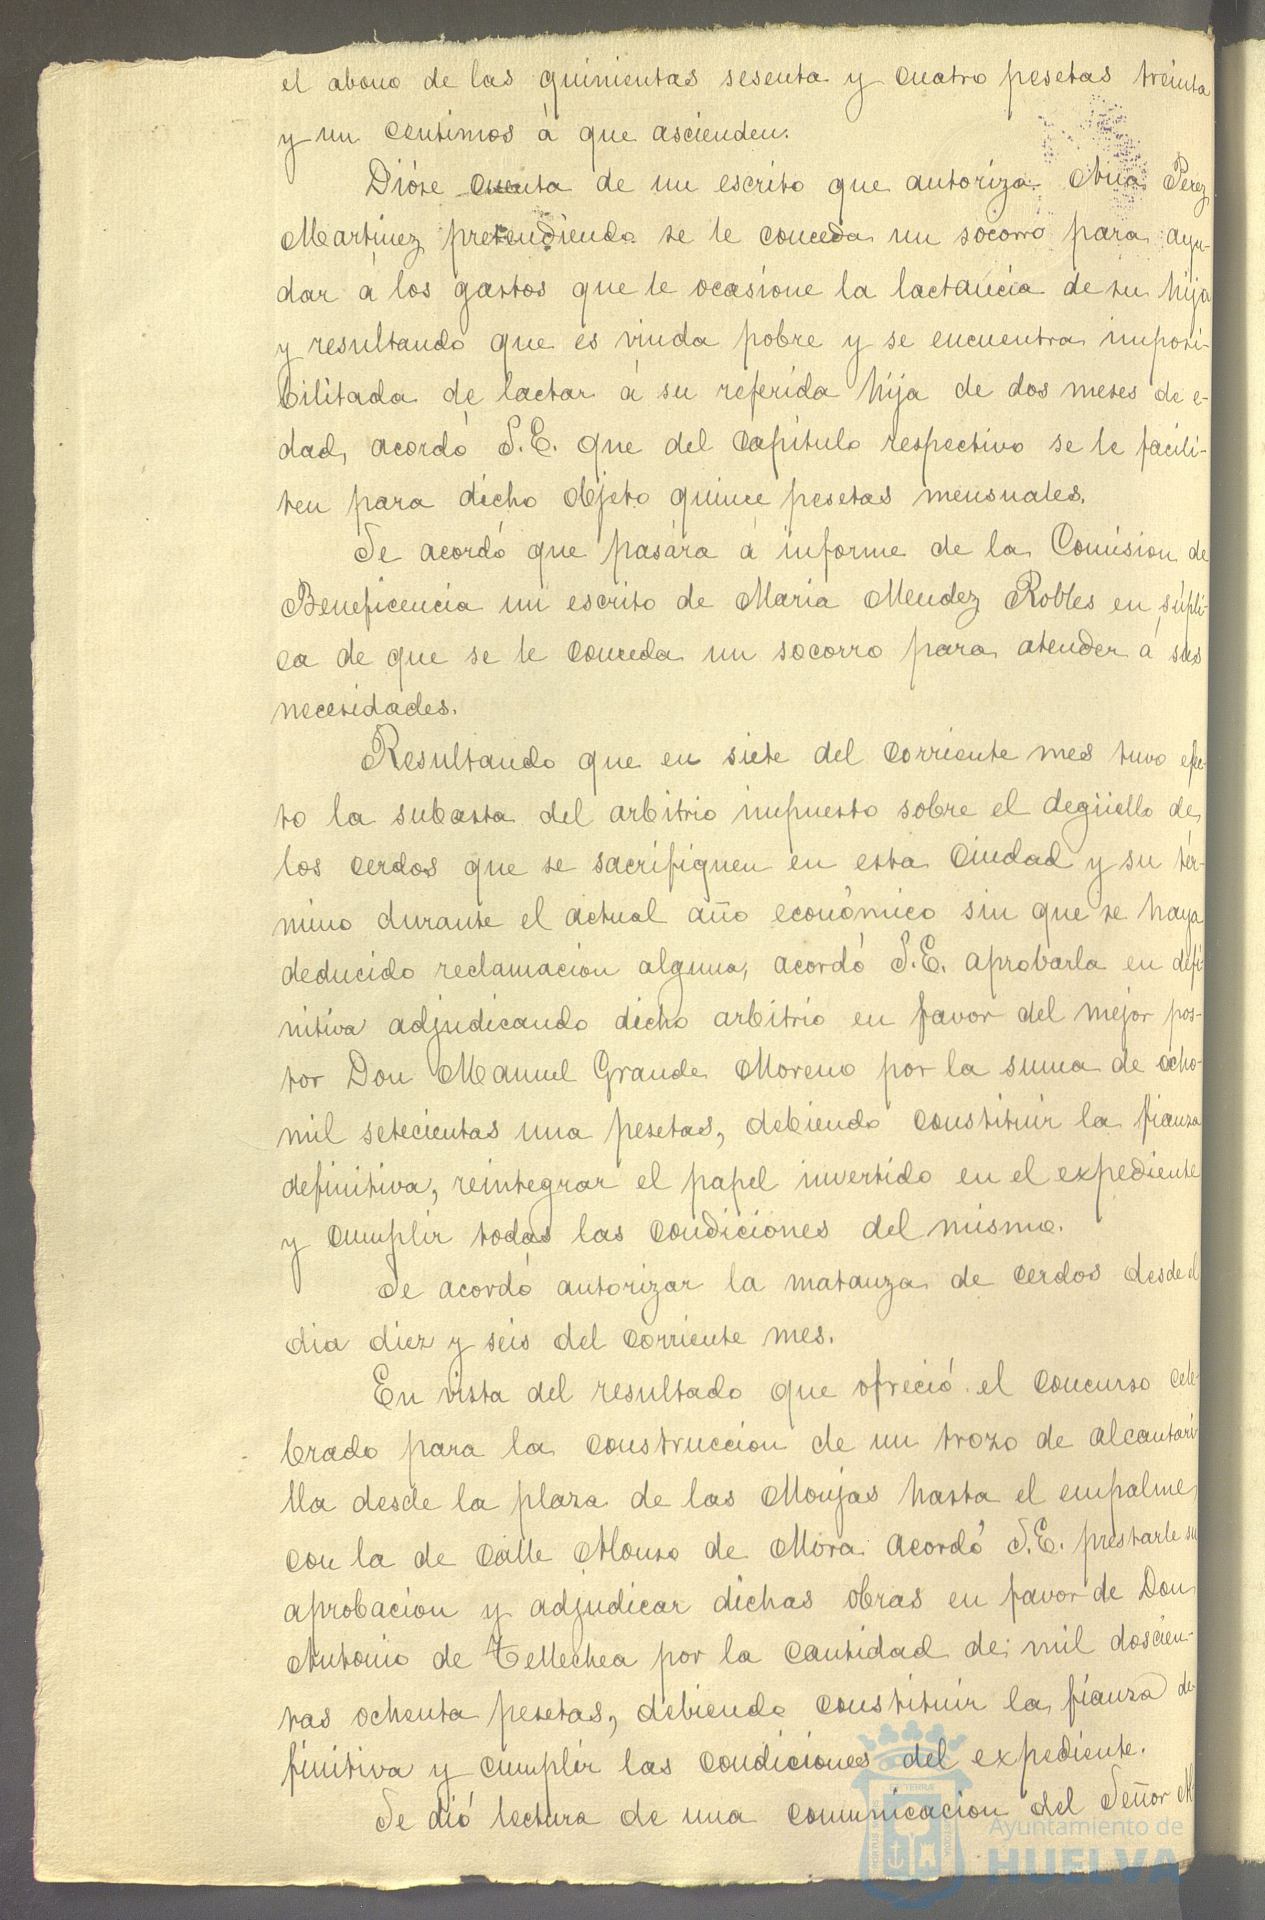 el abono de las quinientas sesenta y cuatro pesetas treinta
y un centimos á que ascienden.
Dióse cuenta de un escrito que autoriza Ana Perez
Martinez pretendiendo se le conceda un socorro para ayu-
dar á los gastos que le ocasione la lactancia de su hija
y resultando que es viuda pobre y se encuentra imposi-
bilitada de lactar á su referida hija de dos meses de e-
dad, acordó S.E. que del Capítulo respectivo se le facili-
ten para dicho objeto quince pesetas mensuales.
Se acordó que pasára á informe de la Comision de
Beneficencia un escrito de Maria Mendez Robles en súpli-
ca de que se le conceda un socorro para atender á sus
necesidades.
Resultando que en siete del corriente mes tuvo efec-
to la subasta del arbitrio impuesto sobre el degüello de
los cerdos que se sacrifiquen en esta Ciudad y su tér-
mino durante el actual año económico sin que se haya
deducido reclamacion alguna, acordó S.E. aprobarla en defi-
nitiva adjudicando dicho arbitrio en favor del mejor pos-
tor Don Manuel Grande Moreno por la suma de ocho-
mil setecientas una pesetas, debiendo constituir la fianza
definitiva, reintegrar el papel invertido en el expediente
y cumplir todas las condiciones del mismo.
Se acordó autorizar la matanza de cerdos desde el
dia diez y seis del corriente mes.
En vista del resultado que ofreció el concurso cele-
brado para la construccion de un trozo de alcantari
lla desde la plaza de las Monjas hasta el empalme
con la de Calle Alonso de Mora acordó S.E. prestarle su
aprobacion y adjudicar dichas obras en favor de Don
Antonio de Tellechea por la cantidad de mil doscien-
tas ochenta pesetas, debiendo constituir la fianza de-
finitiva y cumplir las condiciones del expediente.
Se dió lectura de una comunicacion del Señor Al
Ayuntamiento de
HUELVA